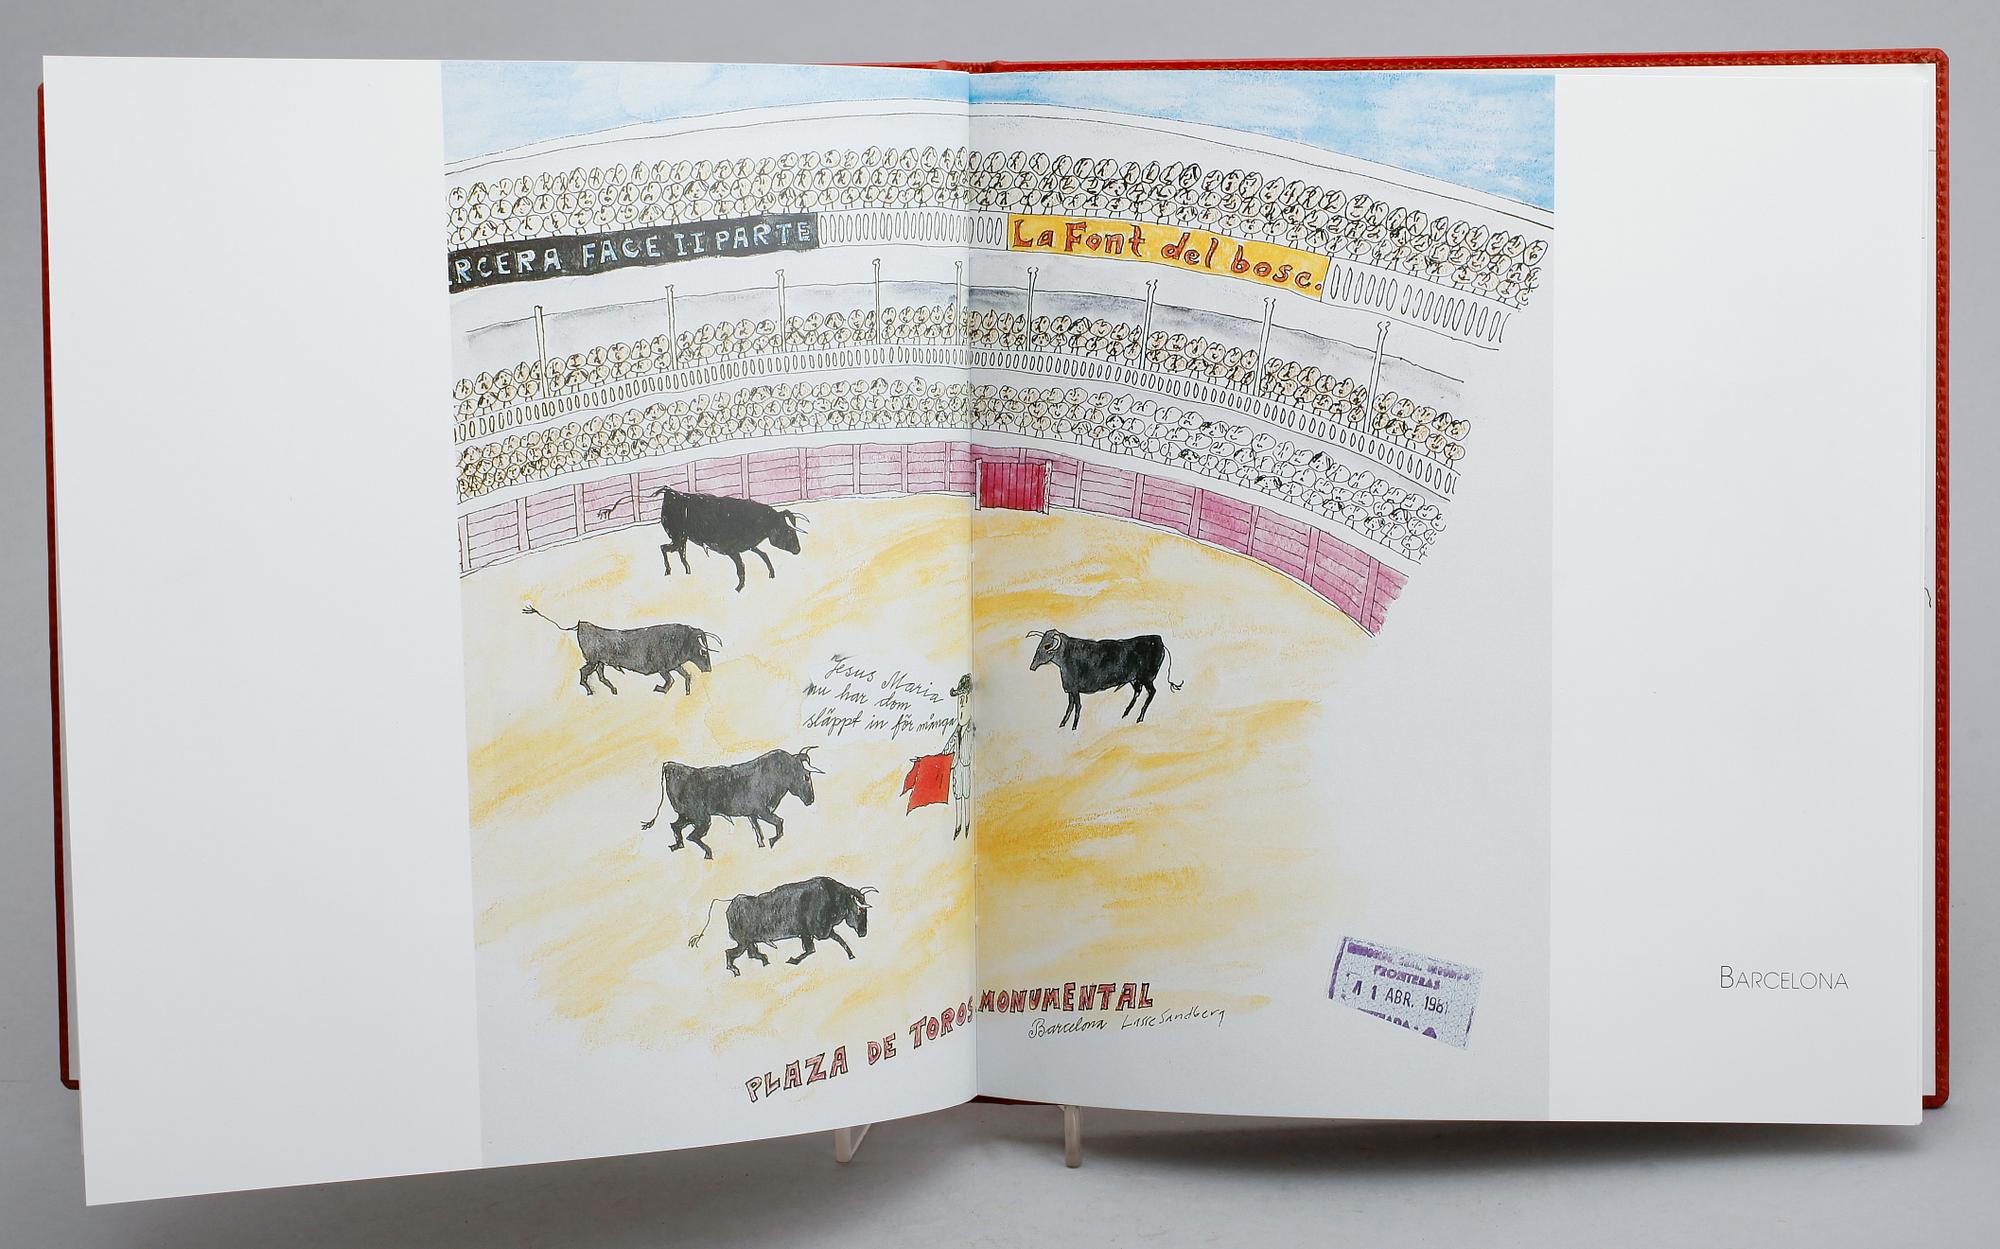 RCERA FACE II PARTE
La Font del bosc.
Jesus Maria
nu har dom
släppt in för många
PLAZA DE TOROS MONUMENTAL
Barcelona Lasse Sandberg
FRONTERAS
11 ABR. 1981
BARCELONA